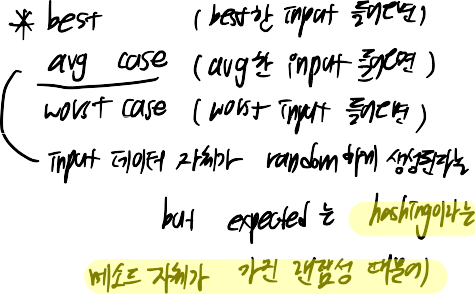 * best (best한 input 들어오면)
avg case (avg한 input 들어오면)
worst case (worst input 들어오면)
input 데이터 자체가 random하게 생성된다는
but expected는 hashing이라는
메소드 자체가 가진 랜덤성 때문에